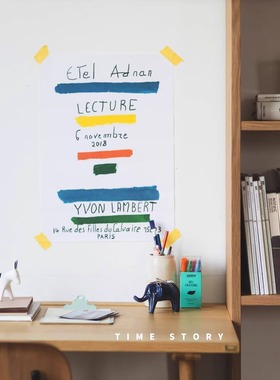 ETEL Adnan
LECTURE
6 novembre
2018
YVON LAMBERT
14 Rue des Filles du Calvaire 75003
PARIS
TIME STORY